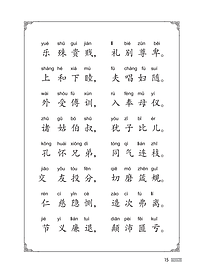 yuè shū guì jiàn lǐ bié zūn bēi
乐殊贵贱，礼别尊卑。
shàng hé xià mù fū chàng fù suí
上和下睦，夫唱妇随。
wài shòu fù xùn rù fèng mǔ yí
外受傅训，入奉母仪。
zhū gū bó shū yóu zǐ bǐ ér
诸姑伯叔，犹子比儿。
kǒng huái xiōng dì tóng qì lián zhī
孔怀兄弟，同气连枝。
jiāo yǒu tóu fèn qiē mó zhēn guī
交友投分，切磨箴规。
rén cí yǐn cè zào cì fú lí
仁慈隐恻，造次弗离。
jié yì lián tuì diān pèi fěi kuī
节义廉退，颠沛匪亏。
15